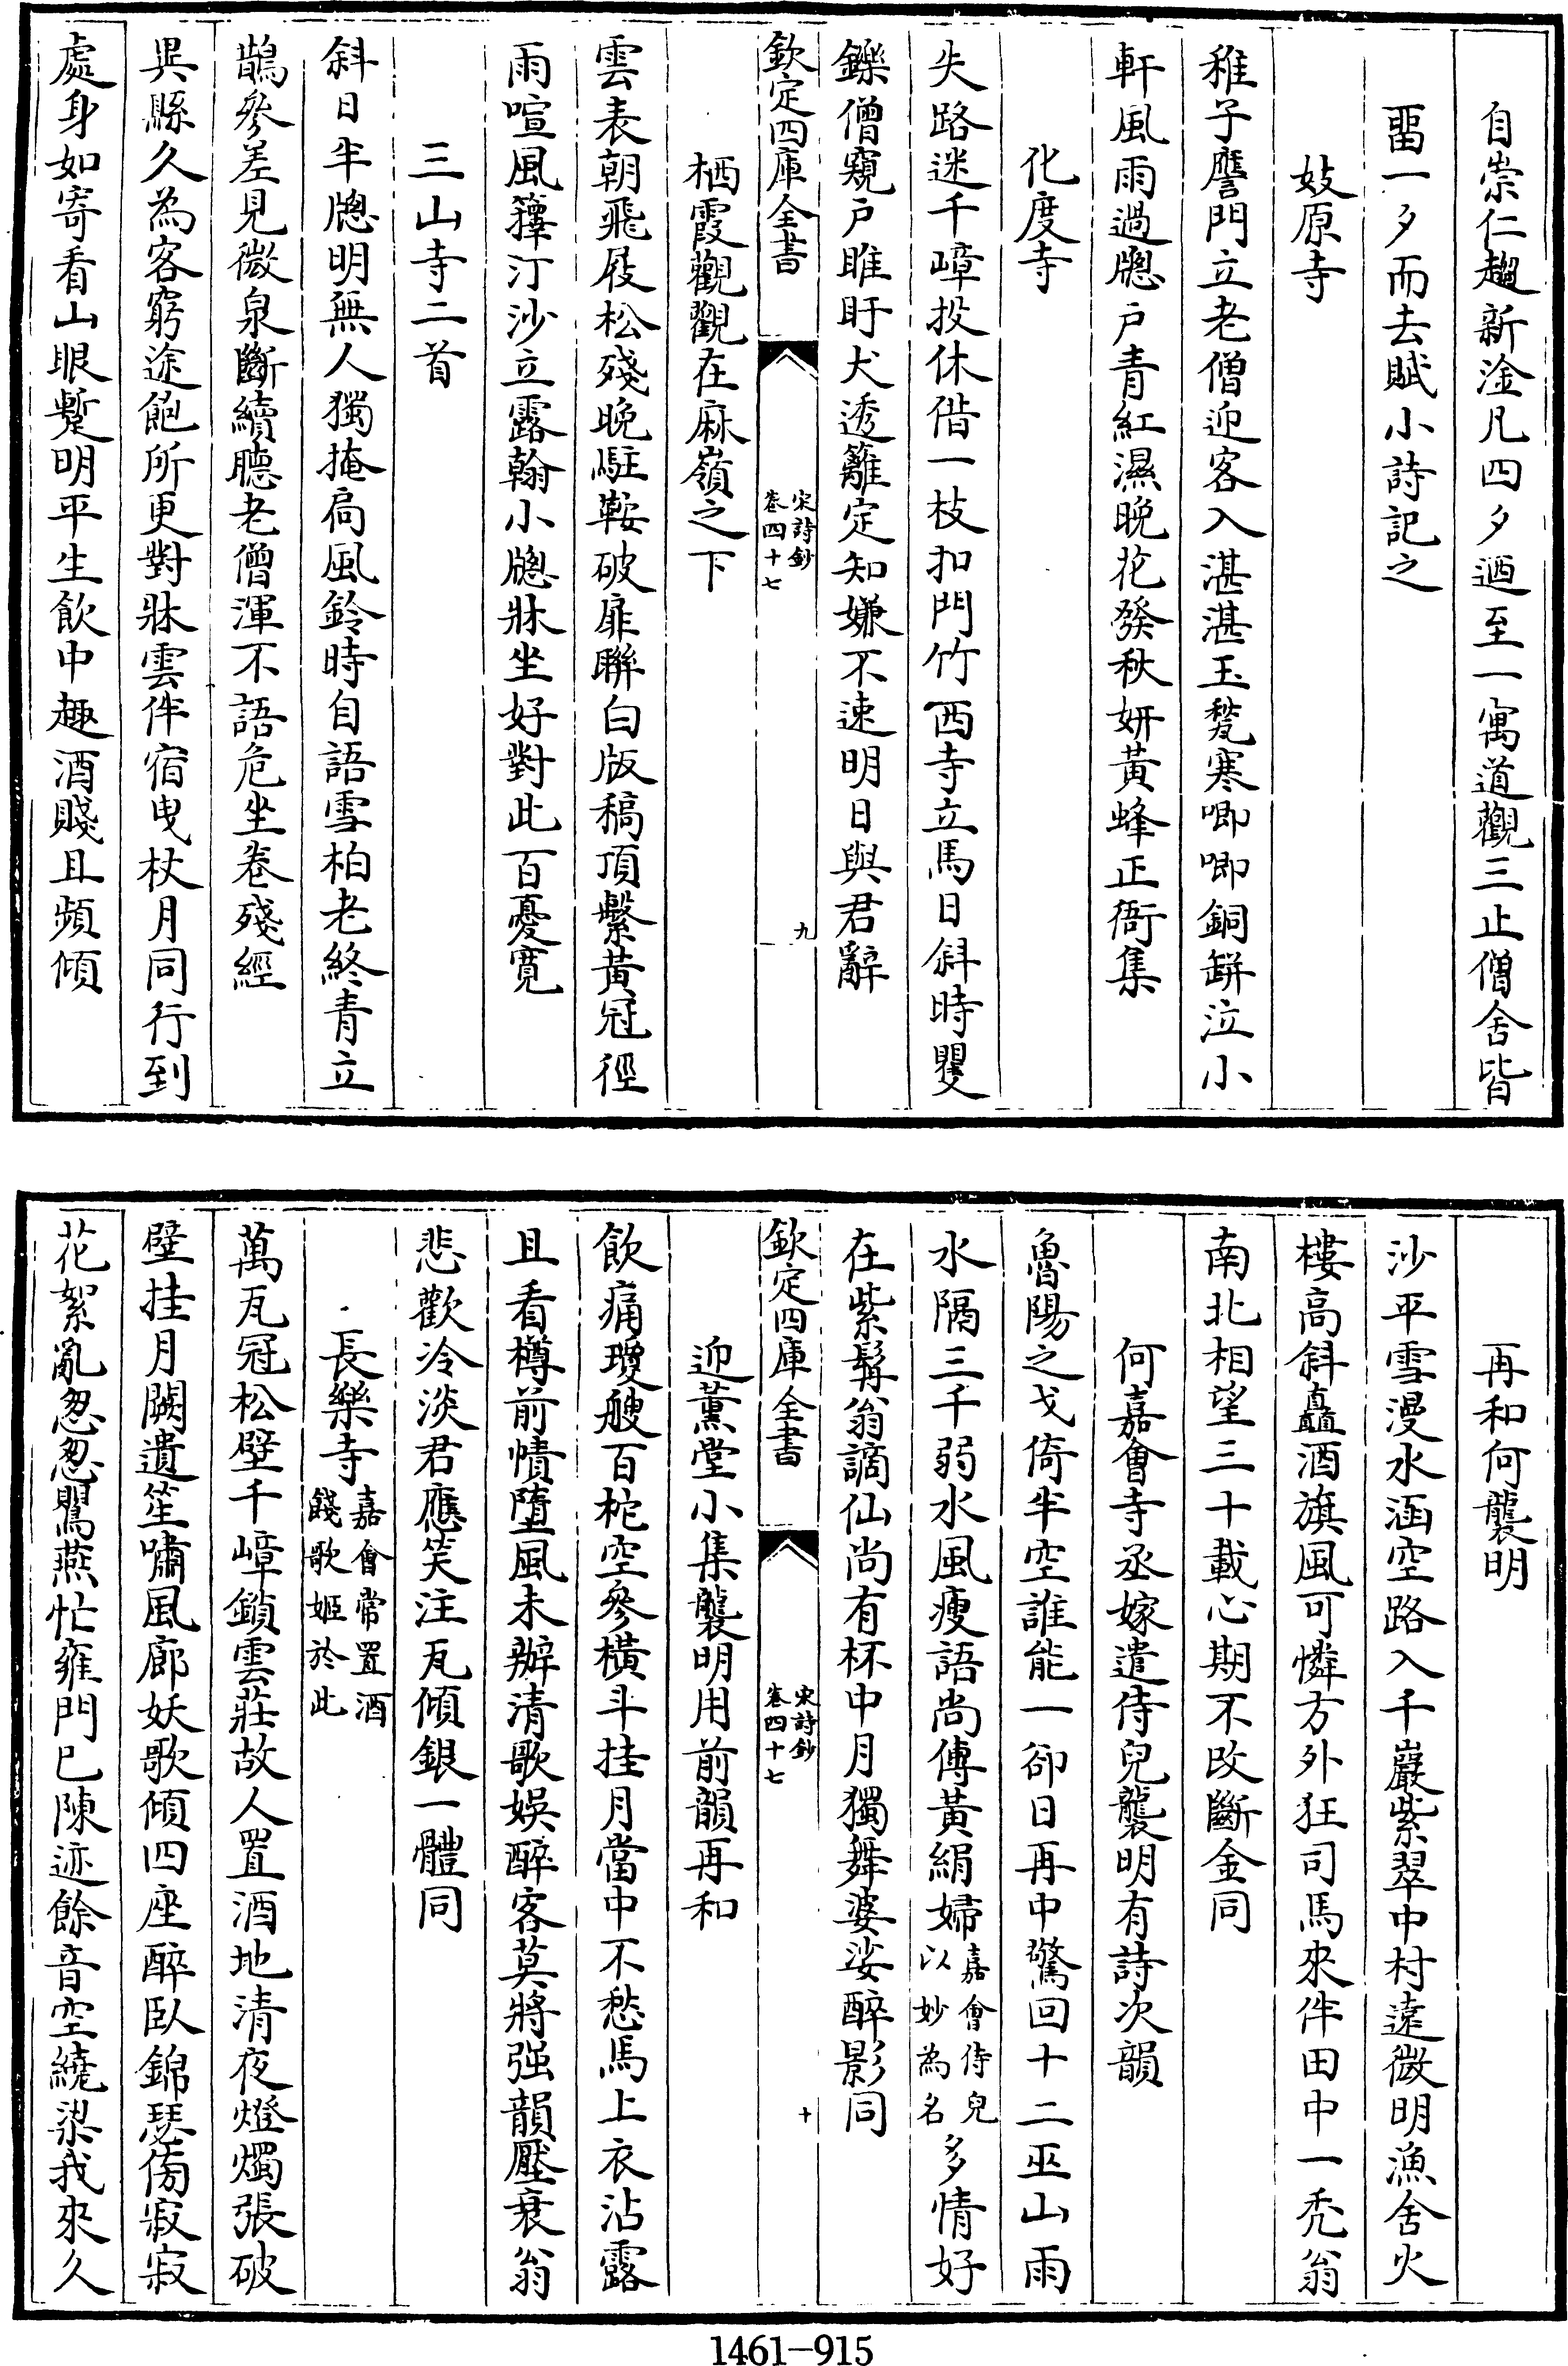 自崇仁趨新淦凡四夕迺至一寓道觀三止僧舍皆
畱一夕而去賦小詩記之
妓原寺
稚子譍門立老僧迎客入湛湛玉甃寒唧唧銅缾泣小
軒風雨過牕戶青紅濕晚花發秋妍黃蜂正衙集
化度寺
失路迷千嶂投休借一枝扣門竹西寺立馬日斜時矍
鑠僧窺戶睢盱犬透籬定知嫌不速明日與君辭
欽定四庫全書
宋詩鈔
卷四十七
九
栖霞觀觀在麻嶺之下
雲表朝飛屐松殘晚駐鞍破扉聯白版稿頂繫黃冠徑
雨喧風籜汀沙立露翰小牕牀坐好對此百憂寬
三山寺二首
斜日半牕明無人獨掩扃風鈴時自語雪柏老終青立
鵲參差見微泉斷續聽老僧渾不語危坐卷殘經
異縣久為客窮途飽所更對牀雲伴宿曳杖月同行到
處身如寄看山眼蹔明平生飲中趣酒賤且頻傾
再和何襲明
沙平雪漫水涵空路入千巖紫翠中村遠微明漁舍火
樓高斜矗酒旗風可憐方外狂司馬來伴田中一禿翁
南北相望三十載心期不改斷金同
何嘉會寺丞嫁遣侍兒襲明有詩次韻
魯陽之戈倚半空誰能一卻日再中驚回十二巫山雨
水隔三千弱水風瘦語尚傳黃絹婦嘉會侍兒以妙為名多情好
在紫髯翁謫仙尚有杯中月獨舞婆娑醉影同
欽定四庫全書
宋詩鈔
卷四十七
十
迎薰堂小集襲明用前韻再和
飲痛瓊艘百柁空參橫斗挂月當中不愁馬上衣沾露
且看樽前幘墮風未辦清歌娛醉客莫將强韻壓衰翁
悲歡冷淡君應笑注瓦傾銀一體同
長樂寺嘉會常置酒餞歌姬於此
萬瓦冠松壁千嶂鎖雲莊故人置酒地清夜燈燭張破
壁挂月闕遺笙嘯風廊妖歌傾四座醉臥錦瑟傍寂寂
花絮亂怱怱鶯燕忙雍門已陳迹餘音空繞梁我來久
1461-915